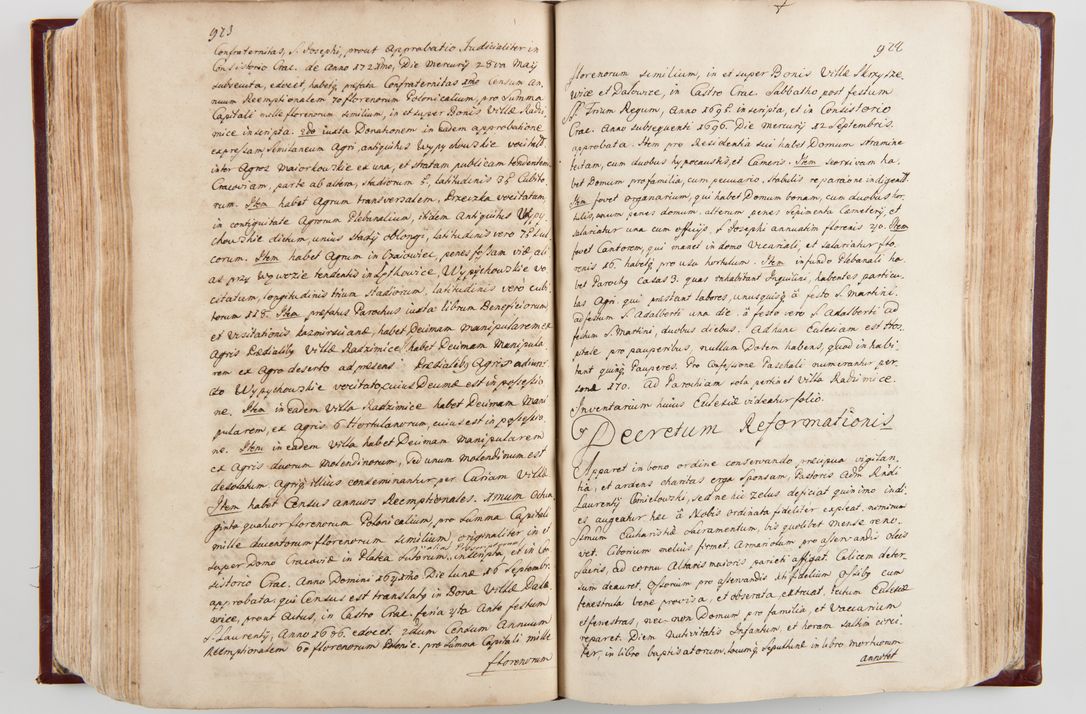 923
Confraternitas, S. Josephi, prout Approbatio Judicialiter in
Consistorio Crac. de Anno 172 Die Mercurij 28va Maij
subsecuta, edocet, habetq. præfata Confraternitas 1mo Censum An-
nuum Reemptionalem 70 florenorum Polonicalium, pro Summa
Capitali mille florenorum similium, in et super Bonis Villæ Radzi-
mice inscripta. 2do iuxta Donationem in eadem approbatione
expressam, similaneum Agri, antiquitus Wypychowskie vocitati
inter Agros Maiorkowskie ex una, et stratam publicam tendentem
Cracoviam, parte ab altera, stadiorum 5, latitudinis 35 Cubito-
rum. Item habet Agrum transversalem, Brzeizka vocitatum,
in contiguitate Agrorum Plebanalium, itidem Antiquitus Wypy-
chowskie dictum, unius stadij oblongi, latitudinis vero 75 Cubi-
torum. Item habet Agrum in Craiowiec, penes fossam viæ ali-
as przy Wąwozie tendentis in Łętkowice, Wypychowskie vo-
citatum, longitudinis trium Stadiorum, latitudinis vero Cubi-
torum 118. Item præfatus Parochus iuxta librum Beneficiorum
et Visitationis Kazmirscianæ, habet Decimam manipularem ex
Agris Prædialibq Villæ Radzimice, habet Decimam Manipula-
rem ex Agro deserto ad præsens Prædialibq Agris adiunc-
to Wypychowskie vocitato, cuius Decimæ est in possessio-
ne. Item in eadem Villa Radzimice habet Decimam Mani-
pularem, ex Agris 6 Hortulanorum, cuius est in possessio-
ne. Item in eadem Villa habet Decimam Manipularem
ex Agris duorum molendinorum, sed unum molendinum est
desolatum, Agriq. illius conseminantur per Curiam Villæ.
Item habet Census annuos Reemptionales. 1mum Octua-
ginta quatuor florenorum Polonicalium, pro Summa Capitali
mille ducentorum florenorum similium, originaliter in et
super Domo Cracoviæ in Platea Sutorum, inscripta, et in Con-
sistorio Crac. Anno Domini Die Lunæ 16 Septembr.
approbata. qui Census est translatq in Bona Villæ Dalo-
wice, prout Actus, in Castro Crac. feria 4ta Ante festum
S. Laurentij, Anno 1696. edocet. 2dum Censum Annuum
Reemptionalem 60 florenorum Polonic. pro Summa Capitali mille
florenorum
924
florenorum similium, in et super Bonis Villæ Skrzysze-
wice et Dalowice, in Castro Crac. Sabbatho post festum
SS. Trium Regum, Anno 1695 inscripta, et in Consistorio
Crac. Anno subsequenti 1696. Die Mercurij 12 Septembris.
approbata. Item pro Residentia sui habet Domum stramine
tectam, cum duobus hypocaustis, et Cameris. Item seorsivam ha-
bet Domum pro familia, cum pecuario. Stabulis reparatione indigent.
Item fovet organarium, qui habet Domum bonam, cum duobus hor-
tulis, unum penes domum, alterum penes sepimenta Cemeterij, et
salariatur una cum officijs S. Josephi annuatim florenis 240. Item
fovet Cantorem, qui manet in domo Vicariali, et salariatur flo-
renis 16. habetq. pro usu hortulum. Item in fundo Plebanali ha-
bet Parochq Casas 3. quas inhabitant Inquilini, habentes particu-
las Agri, qui præstant labores, unusquisq. à festo S. Martini,
ad festum S. Adalberti una die. à festo vero S. Adalberti ad
festum S. Martini, duobus diebus. Ad hanc Ecclesiam est Hos-
pitale pro pauperibus, nullam Dotem habens, quod inhabi-
tant quinq. Pauperes. Pro Confessione Paschali numerantur per-
sonæ 170. Ad Parochiam sola pertinet Villa Radzimice.
Inventarium huius Ecclesiæ videatur folio.
Decretum Reformationis
Apparet in bono ordine conservando præcipua vigilan-
tia, et ardens charitas erga sponsam, Pastoris Adm Rndi
Laurentij Cmielowski, sed ne hic zelus deficiat quinimo indi-
es augeatur hæc à Nobis ordinata fideliter expleat. nimirum
Ssmum Eucharistiæ Sacramentum, bis quolibet mense reno-
vet. Ciborium melius firmet, Armariolum pro asservandis oleis
sacris, ad cornu Altaris maioris parieti affigat. Calicem deter-
sum deauret, Ossorium pro asservandis Xti fidelium Ossibq cum
fenestrula bene provisa, et obserata, extruat, tectum Ecclesiæ
et fenestras, nec non Domum pro familia, et Vaccarium
reparet. Diem Nativitatis Infantum, et horam saltim circi-
ter, in libro baptisatorum, locumq. Sepulturæ in libro mortuorum
annotet